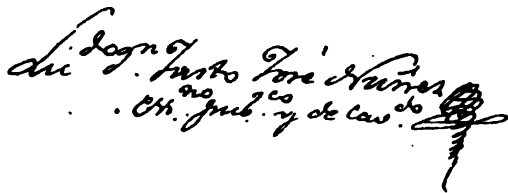 Lic.do Ygn.o Justo José Nuñez
Ess.no pub.co y de Cav.do